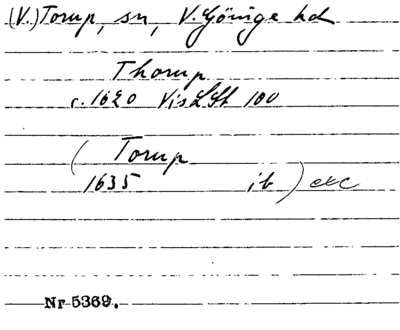 (V.) Torup, sn, V. Göinge hd
Thorup
c. 1620 VisLSt 100
( Torup
1635 ib ) etc
Nr 5369.